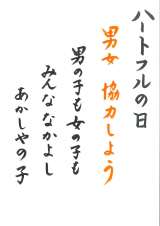 ハートフルの日
男女 協力しよう
男の子も女の子も
みんな なかよし
あかしやの子